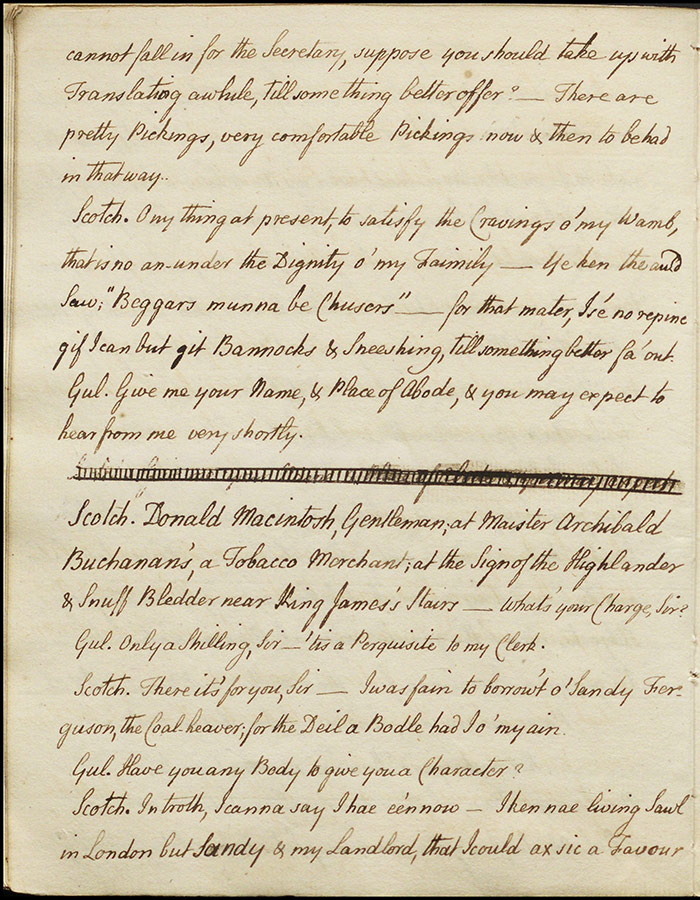 cannot fall in for the Secretary, suppose you should take up with
Translating awhile, till some thing better offer? — There are
pretty Pickings, very comfortable Pickings now & then to be had
in that way.
Scotch. Ony thing at present, to satisfy the Cravings o' my Wamb,
that is no an-under the Dignity o' my Faimily — Ye ken the auld
Saw; "Beggars munna be Chusers" — for that mater, I'se no repine
gif I can but git Bannocks & Sneeshing, till something better fa' out.
Gul. Give me your Name, & Place of Abode, & you may expect to
hear from me very shortly.
Scotch. Donald Macintosh, Gentleman; at Maister Archibald
Buchanan's, a Tobacco Merchant; at the Sign of the Highlander
& Snuff Bledder near King James's Stairs — What's your Charge, Sir?
Gul. Only a Shilling, Sir — 'tis a Perquisite to my Clerk.
Scotch. There it's for you, Sir — I was fain to borrow't o' Sandy Fer-
guson, the Coal-heaver; for the Deil a Bodle had I o' my ain.
Gul. Have you any Body to give you a Character?
Scotch. In troth, I canna say I hae e'en now — I ken nae living Sawl
in London but Sandy & my Landlord, that I could ax sic a Favour